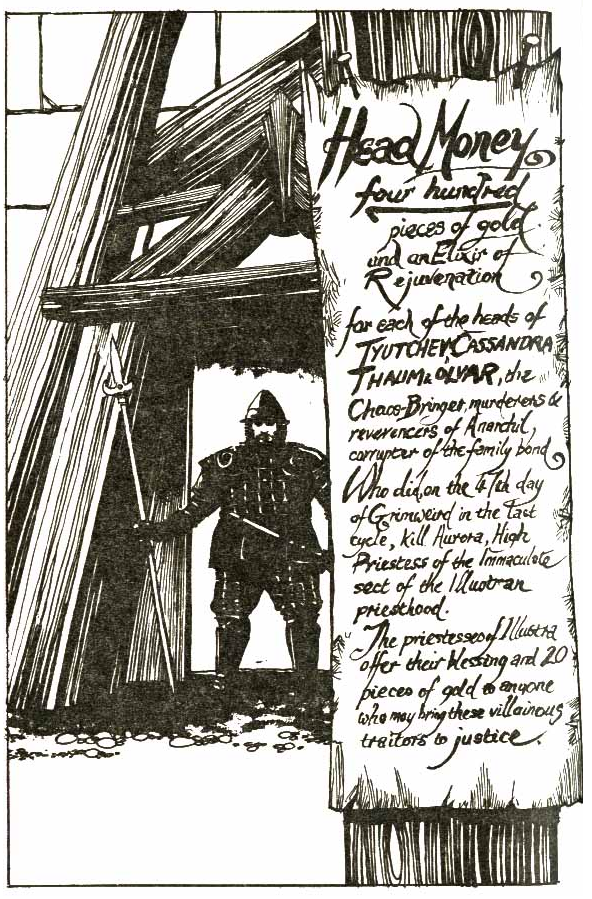 Head Money
four hundred
pieces of gold
and an Elixir of
Rejuvenation
for each of the heads of
TYUTCHEV, CASSANDRA
THAUM & OLVAR, the
Chaos-Bringer, murderers &
reverencers of Anarchil,
corrupter of the family bond
Who did, on the 47th day
of Grimweird in the last
cycle, kill Aurora, High
Priestess of the Immaculate
sect of the Illustran
priesthood.
The priestesses of Illustra
offer their blessing and 20
pieces of gold to anyone
who may bring these villainous
traitors to justice.